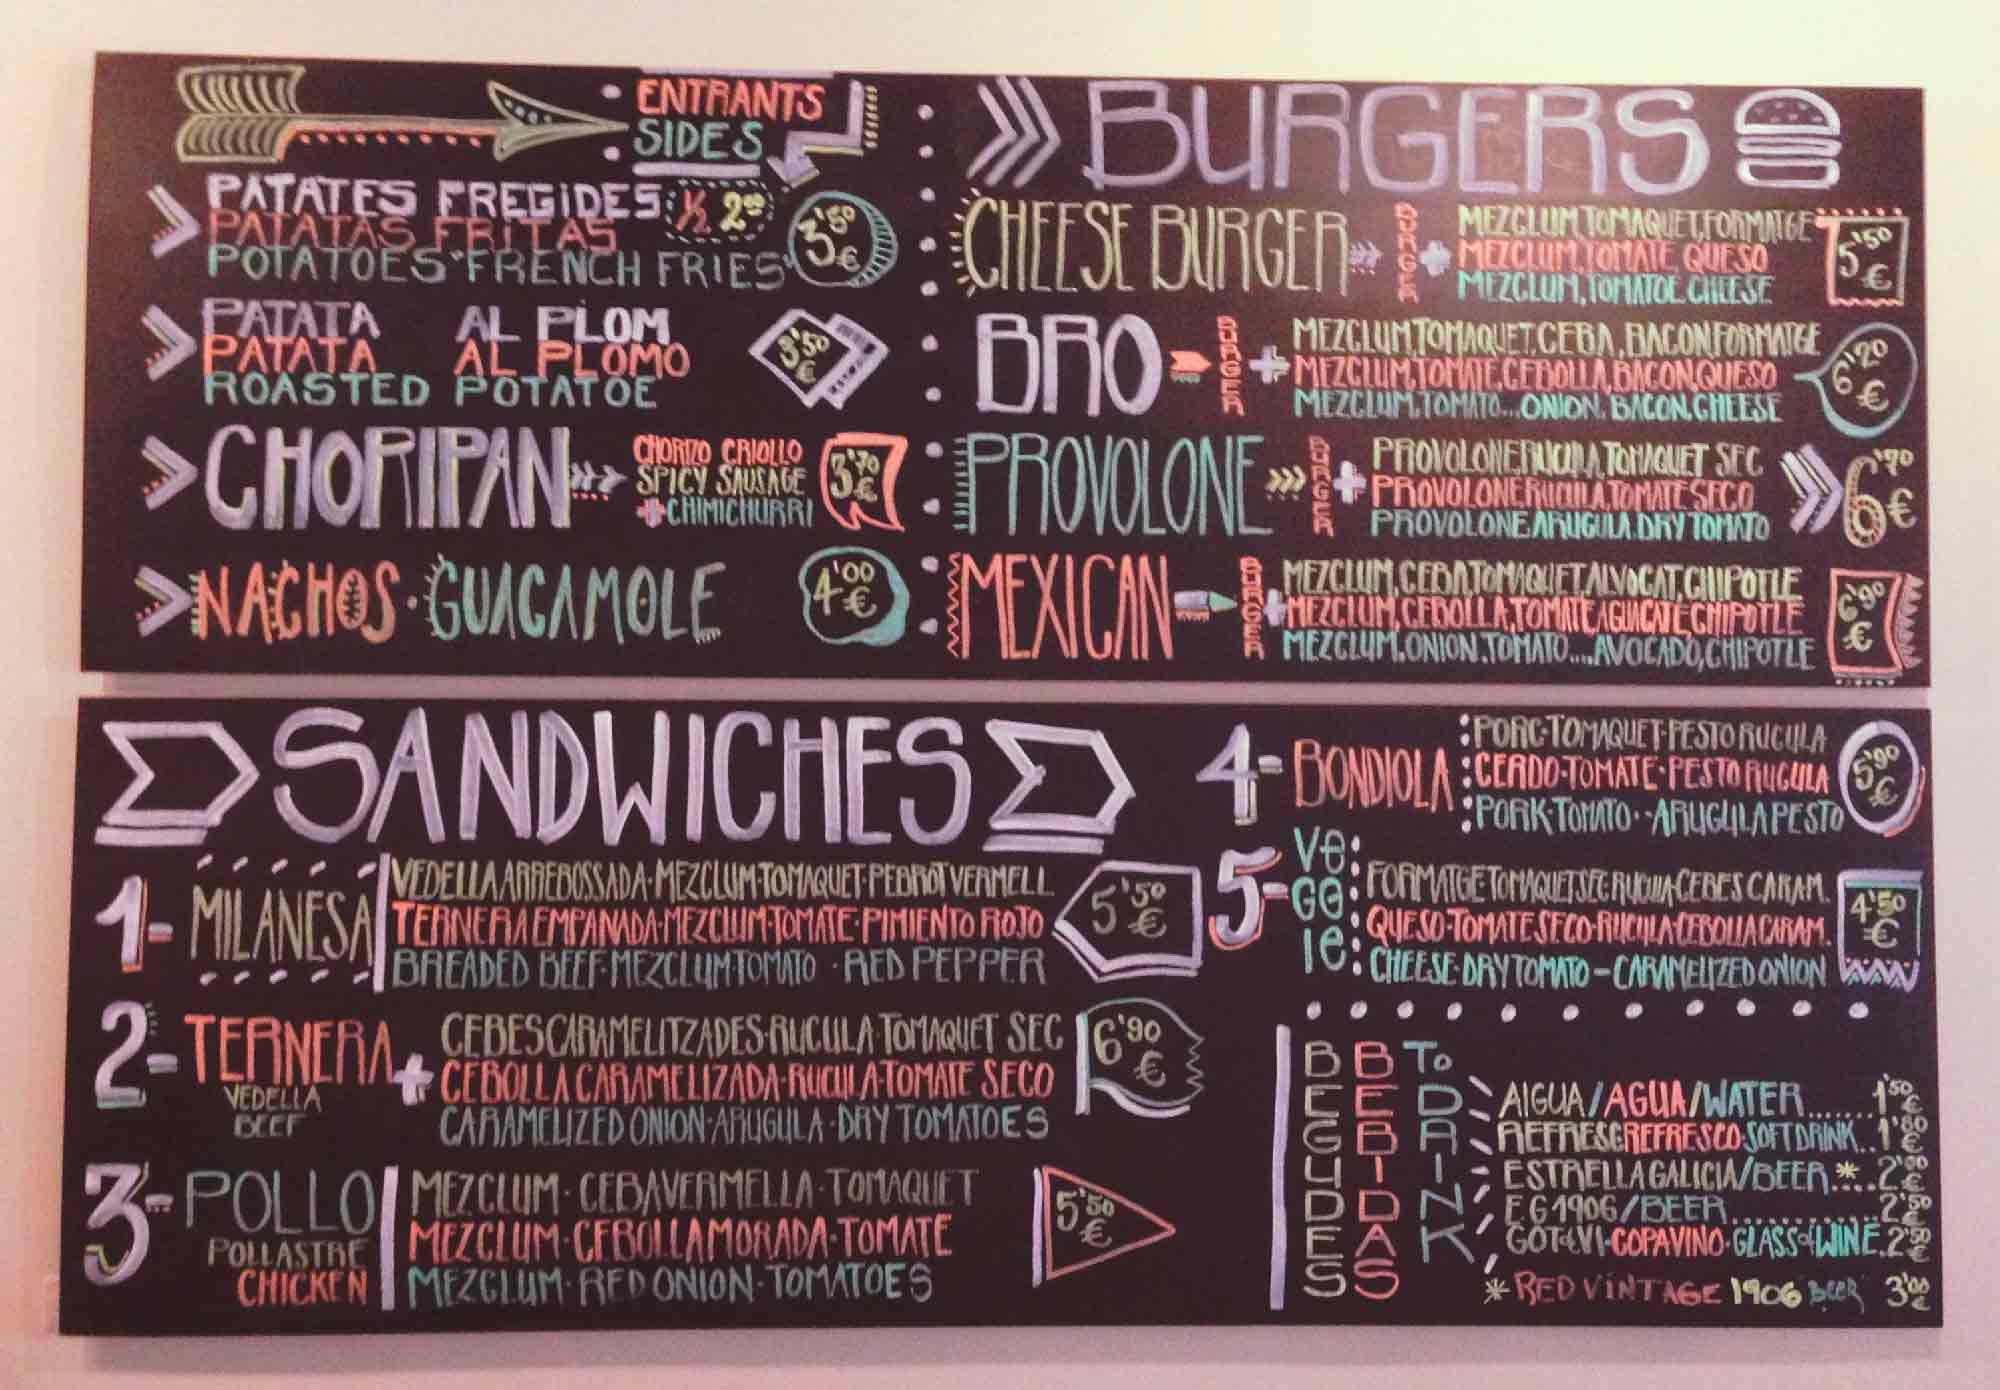 ENTRANTS
SIDES
PATATES FREGIDES 1/2 2'00
PATATAS FRITAS
POTATOES "FRENCH FRIES"
3'50 €
PATATA AL PLOM
PATATA AL PLOMO
ROASTED POTATOE
3'50 €
CHORIPAN
CHORIZO CRIOLLO
SPICY SAUSAGE
+ CHIMICHURRI
3'70 €
NACHOS · GUACAMOLE
4'00 €
BURGERS
CHEESE BURGER
BURGER +
MEZCLUM, TOMAQUET, FORMATGE
MEZCLUM, TOMATE QUESO
MEZCLUM, TOMATOE, CHEESE
5'50 €
BRO
BURGER +
MEZCLUM, TOMAQUET, CEBA, BACON, FORMATGE
MEZCLUM, TOMATE, CEBOLLA, BACON, QUESO
MEZCLUM, TOMATO... ONION, BACON, CHEESE
6'20 €
PROVOLONE
BURGER +
PROVOLONE, RUCULA, TOMAQUET SEC
PROVOLONE RUCULA, TOMATE SECO
PROVOLONE, ARUGULA, DRY TOMATO
6'70 €
MEXICAN
BURGER +
MEZCLUM, CEBA, TOMAQUET, ALVOCAT, CHIPOTLE
MEZCLUM, CEBOLLA, TOMATE, AGUACATE, CHIPOTLE
MEZCLUM, ONION, TOMATO.... AVOCADO, CHIPOTLE
6'90 €
SANDWICHES
1- MILANESA
VEDELLA ARREBOSSADA · MEZCLUM · TOMAQUET · PEBROT VERMELL
TERNERA EMPANADA · MEZCLUM · TOMATE · PIMIENTO ROJO
BREADED BEEF · MEZCLUM · TOMATO · RED PEPPER
5'50 €
2- TERNERA +
VEDELLA
BEEF
CEBES CARAMELITZADES · RUCULA · TOMAQUET SEC
CEBOLLA CARAMELIZADA · RUCULA · TOMATE SECO
CARAMELIZED ONION · ARUGULA · DRY TOMATOES
6'90 €
3- POLLO
POLLASTRE
CHICKEN
MEZCLUM · CEBA VERMELLA · TOMAQUET
MEZCLUM · CEBOLLA MORADA · TOMATE
MEZCLUM · RED ONION · TOMATOES
5'50 €
4- BONDIOLA
PORC · TOMAQUET · PESTO RUCULA
CERDO · TOMATE · PESTO RUGULA
PORK · TOMATO · · ARUGULA PESTO
5'90 €
5- VEGGIE
FORMATGE · TOMAQUET SEC · RUCULA · CEBES CARAM.
QUESO · TOMATE SECO · RUCULA · CEBOLLA CARAM.
CHEESE · DRY TOMATO - CARAMELIZED ONION
4'50 €
BEGUDES
BEBIDAS
To DRINK
AIGUA / AGUA / WATER ....... 1'50 €
REFRESC REFRESCO · SOFT DRINK .. 1'80 €
ESTRELLA GALICIA / BEER * .... 2'00 €
E.G 1906 / BEER .............. 2'50 €
GOT de VI · COPA VINO · GLASS of WINE. 2'50 €
* RED VINTAGE 1906 BEER 3'00 €